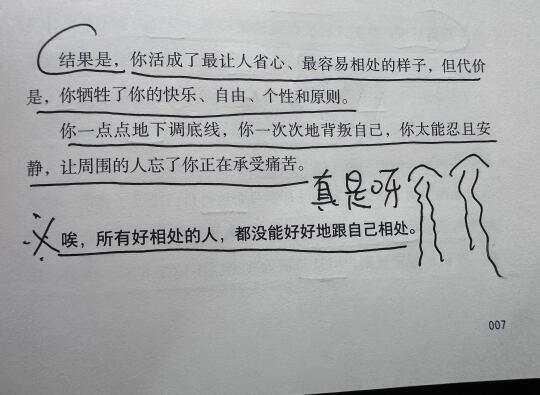 结果是，你活成了最让人省心、最容易相处的样子，但代价
是，你牺牲了你的快乐、自由、个性和原则。
你一点点地下调底线，你一次次地背叛自己，你太能忍且安
静，让周围的人忘了你正在承受痛苦。
真是呀
唉，所有好相处的人，都没能好好地跟自己相处。
007